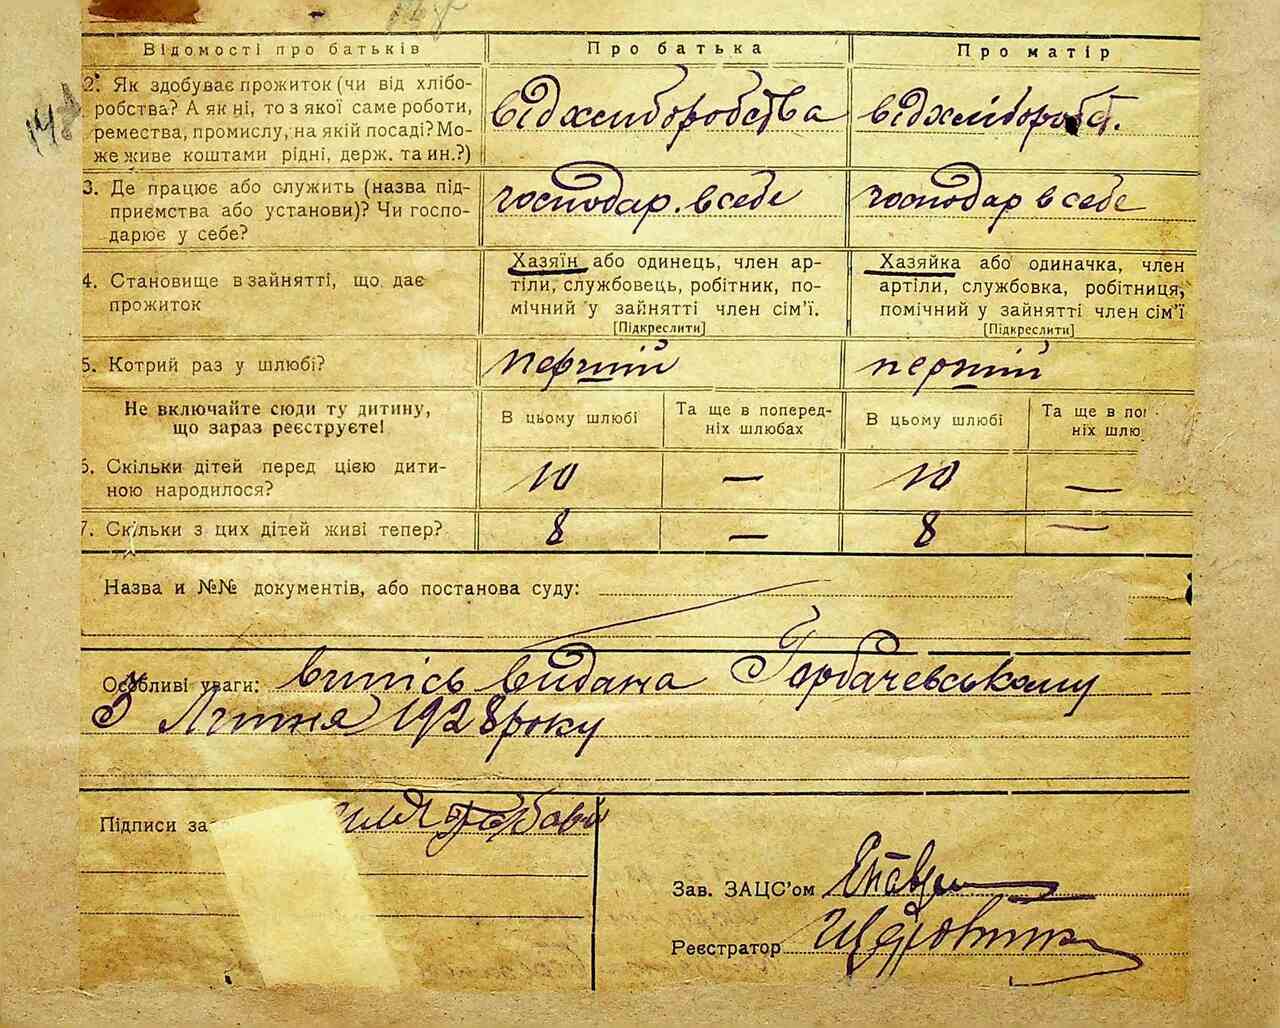 Відомості про батьків Про батька Про матір
2. Як здобуває прожиток (чи від хлібо-
робства? А як ні, то з якої саме роботи,
ремества, промислу, на якій посаді? Мо-
же живе коштами рідні, держ. та ин.?)
від хліборобства від хлібороб.
3. Де працює або служить (назва під-
приємства або установи)? Чи госпо-
дарює у себе?
господар. в себе господар в себе
4. Становище в зайнятті, що дає
прожиток
Хазяїн або одинець, член ар-
тілі, службовець, робітник, по-
мічний у зайнятті член сім'ї.
[Підкреслити]
Хазяйка або одиначка, член
артілі, службовка, робітниця,
помічний у зайнятті член сім'ї
[Підкреслити]
5. Котрий раз у шлюбі? перший перший
Не включайте сюди ту дитину,
що зараз реєструєте!
В цьому шлюбі
Та ще в поперед-
ніх шлюбах
В цьому шлюбі
Та ще в по
ніх шлю
6. Скільки дітей перед цією дити-
ною народилося?
10 — 10 —
7. Скільки з цих дітей живі тепер? 8 — 8 —
Назва и №№ документів, або постанова суду:
Особливі уваги: витпісь видана Горбачевському
3 Липня 1928 року
Підписи за
Зав. ЗАЦС'ом
Реєстратор